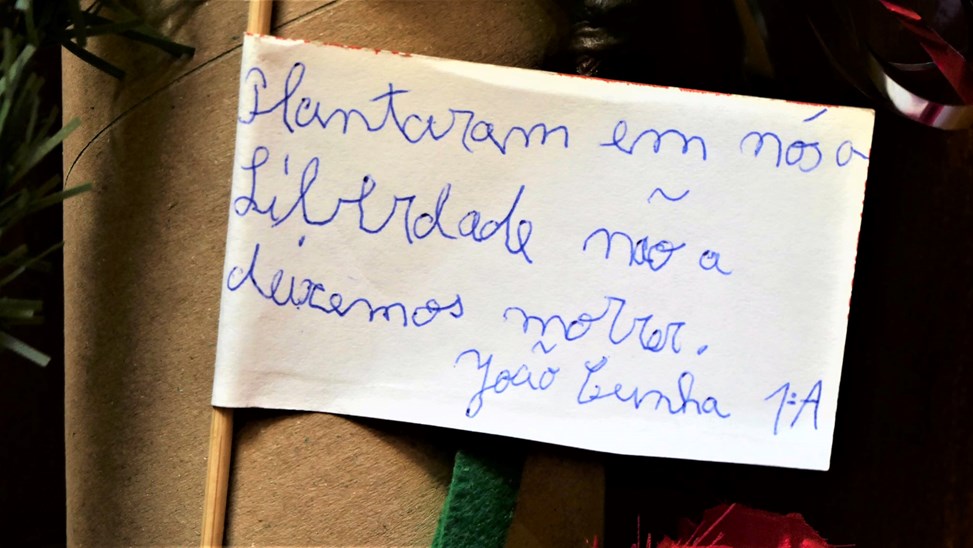 Plantaram em nós a
Liberdade não a
deixemos morrer.
João Cunha 1ºA